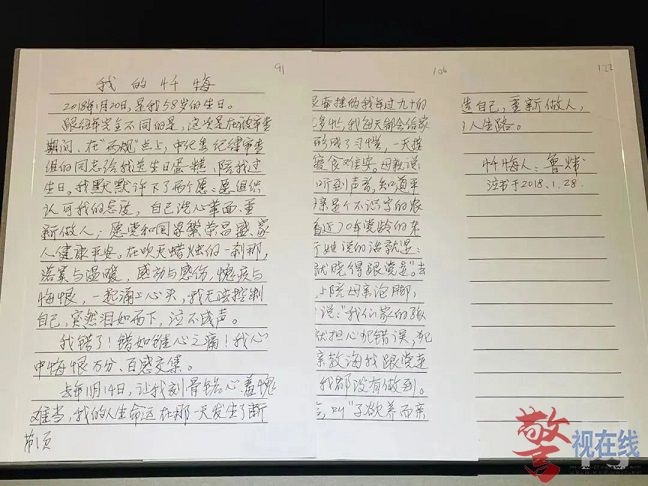 91
我的忏悔
2018年1月20日,是我58岁的生日。
跟往年完全不同的是,这次是在被审查
期间、在"两规"点上,中纪委纪律审查
组的同志给我送生日蛋糕、陪我过
生日。我默默许下了两个愿:愿组织
认可我的态度,自己洗心革面、重
新做人;愿党和国家繁荣昌盛、家
人健康平安。在吹灭蜡烛的一刹那,
落寞与温暖,感动与感伤,愧疚与
悔恨,一起涌上心头,我无法控制
自己,突然泪如雨下,泣不成声。
我错了!错如锥心之痛!我心
中悔恨万分、百感交集。
去年11月14日,让我刻骨铭心、羞愧
难当,我的人生命运在那一天发生了断
第1页
106
牵挂的我年过九十的
我每天都会给家
成了习惯,一天
寝食难安。母亲说
听到声音,知道平
亲是个不识字的农
近70年党龄的
她说的话就是:
就晓得跟党走"。去
上陪母亲泡脚,
说:"我们家的
担心犯错误,
亲教诲我跟党走
我都没有做到。
叫"子欲养而亲
122
造自己,重新做人,
人生路。
忏悔人:鲁炜
泣书于2018.1.28.
警视在线